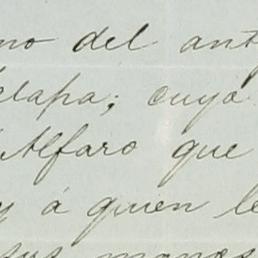 no del ant
elapa; cuya
Alfaro que
y á quien le
sus manos